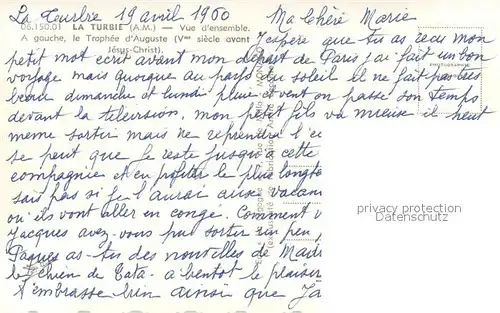 La Turbie 19 avril 1960
Ma Chère Marie
06.150.01 LA TURBIE (A.M.) — Vue d'ensemble.
A gauche, le Trophée d'Auguste (Vme siècle avant
Jésus-Christ).
J'espère que tu as reçu mon
petit mot écrit avant mon départ de Paris j'ai fait un bon
voyage mais quoique au pays du soleil il ne fait pas très
beau dimanche et lundi pluie et vent on passe son temps
devant la télévision, mon petit fils va mieux il peut
même sortir mais ne reprendra l'
se peut que je reste jusqu'à cette
compagnie et en profiter le plus longte
sais pas si je l'aurai aux vacan
où ils vont aller en congé. Comment v
Jacques avez-vous pu sortir un peu
Pâques as-tu des nouvelles de
le chien de Tata - a bientôt le plaisir
t'embrasse bien ainsi que Ja
privacy protection
Datenschutz